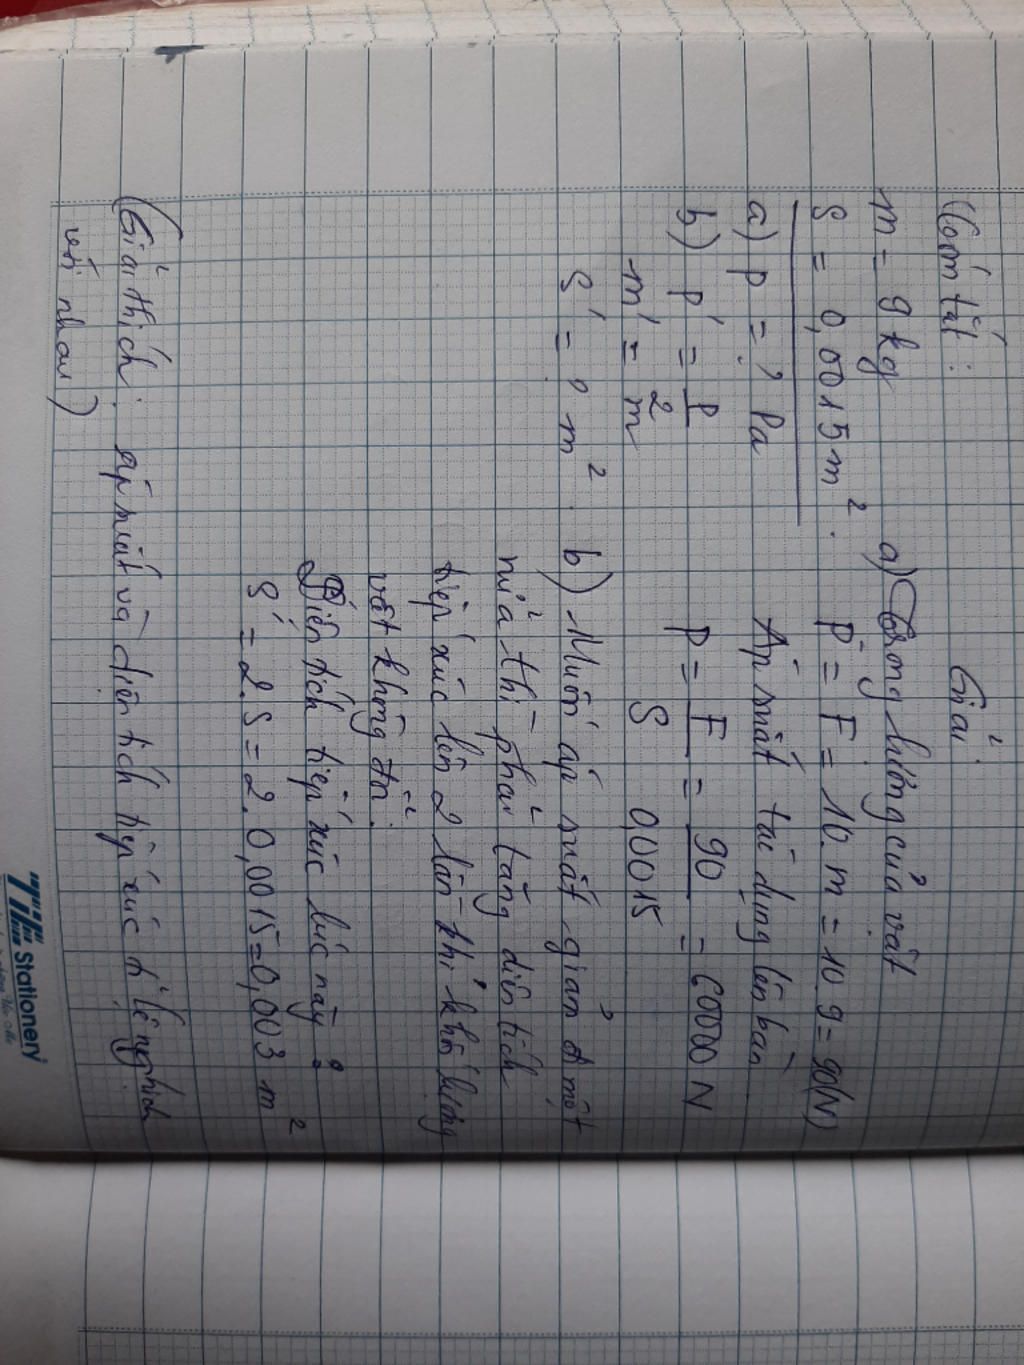 Tóm tắt:
m = 9 kg
S = 0,0015 m².
a) p = ? Pa
b) p' = p/2
m' = m
S' = ? m²
Giải
a) Trọng lượng của vật
P = F = 10.m = 10.9 = 90(N)
Áp suất tác dụng lên bàn
p = F/S = 90/0,0015 = 60000 N
b) Muốn áp suất giảm đi một
nửa thì phải tăng diện tích
tiếp xúc lên 2 lần khi khối lượng
vật không đổi.
Diện tích tiếp xúc lúc này:
S' = 2.S = 2.0,0015 = 0,003 m²
(Giải thích: áp suất và diện tích tiếp xúc tỉ lệ nghịch
với nhau)
Stationery